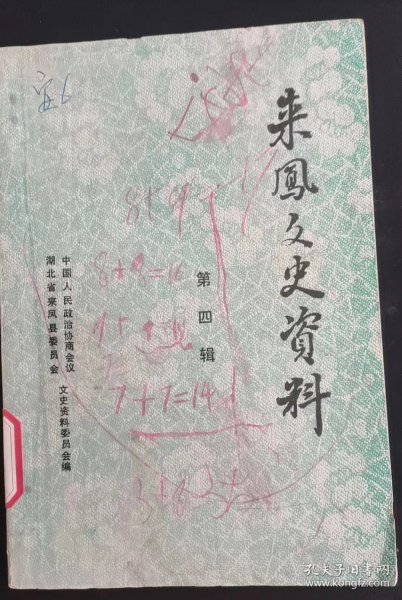 来鳳文史資料
第四辑
中国人民政治协商会议
湖北省来凤县委员会
文史资料委员会编
8+8=16
7+7=14
孔夫子旧书网
www.kongfz.com